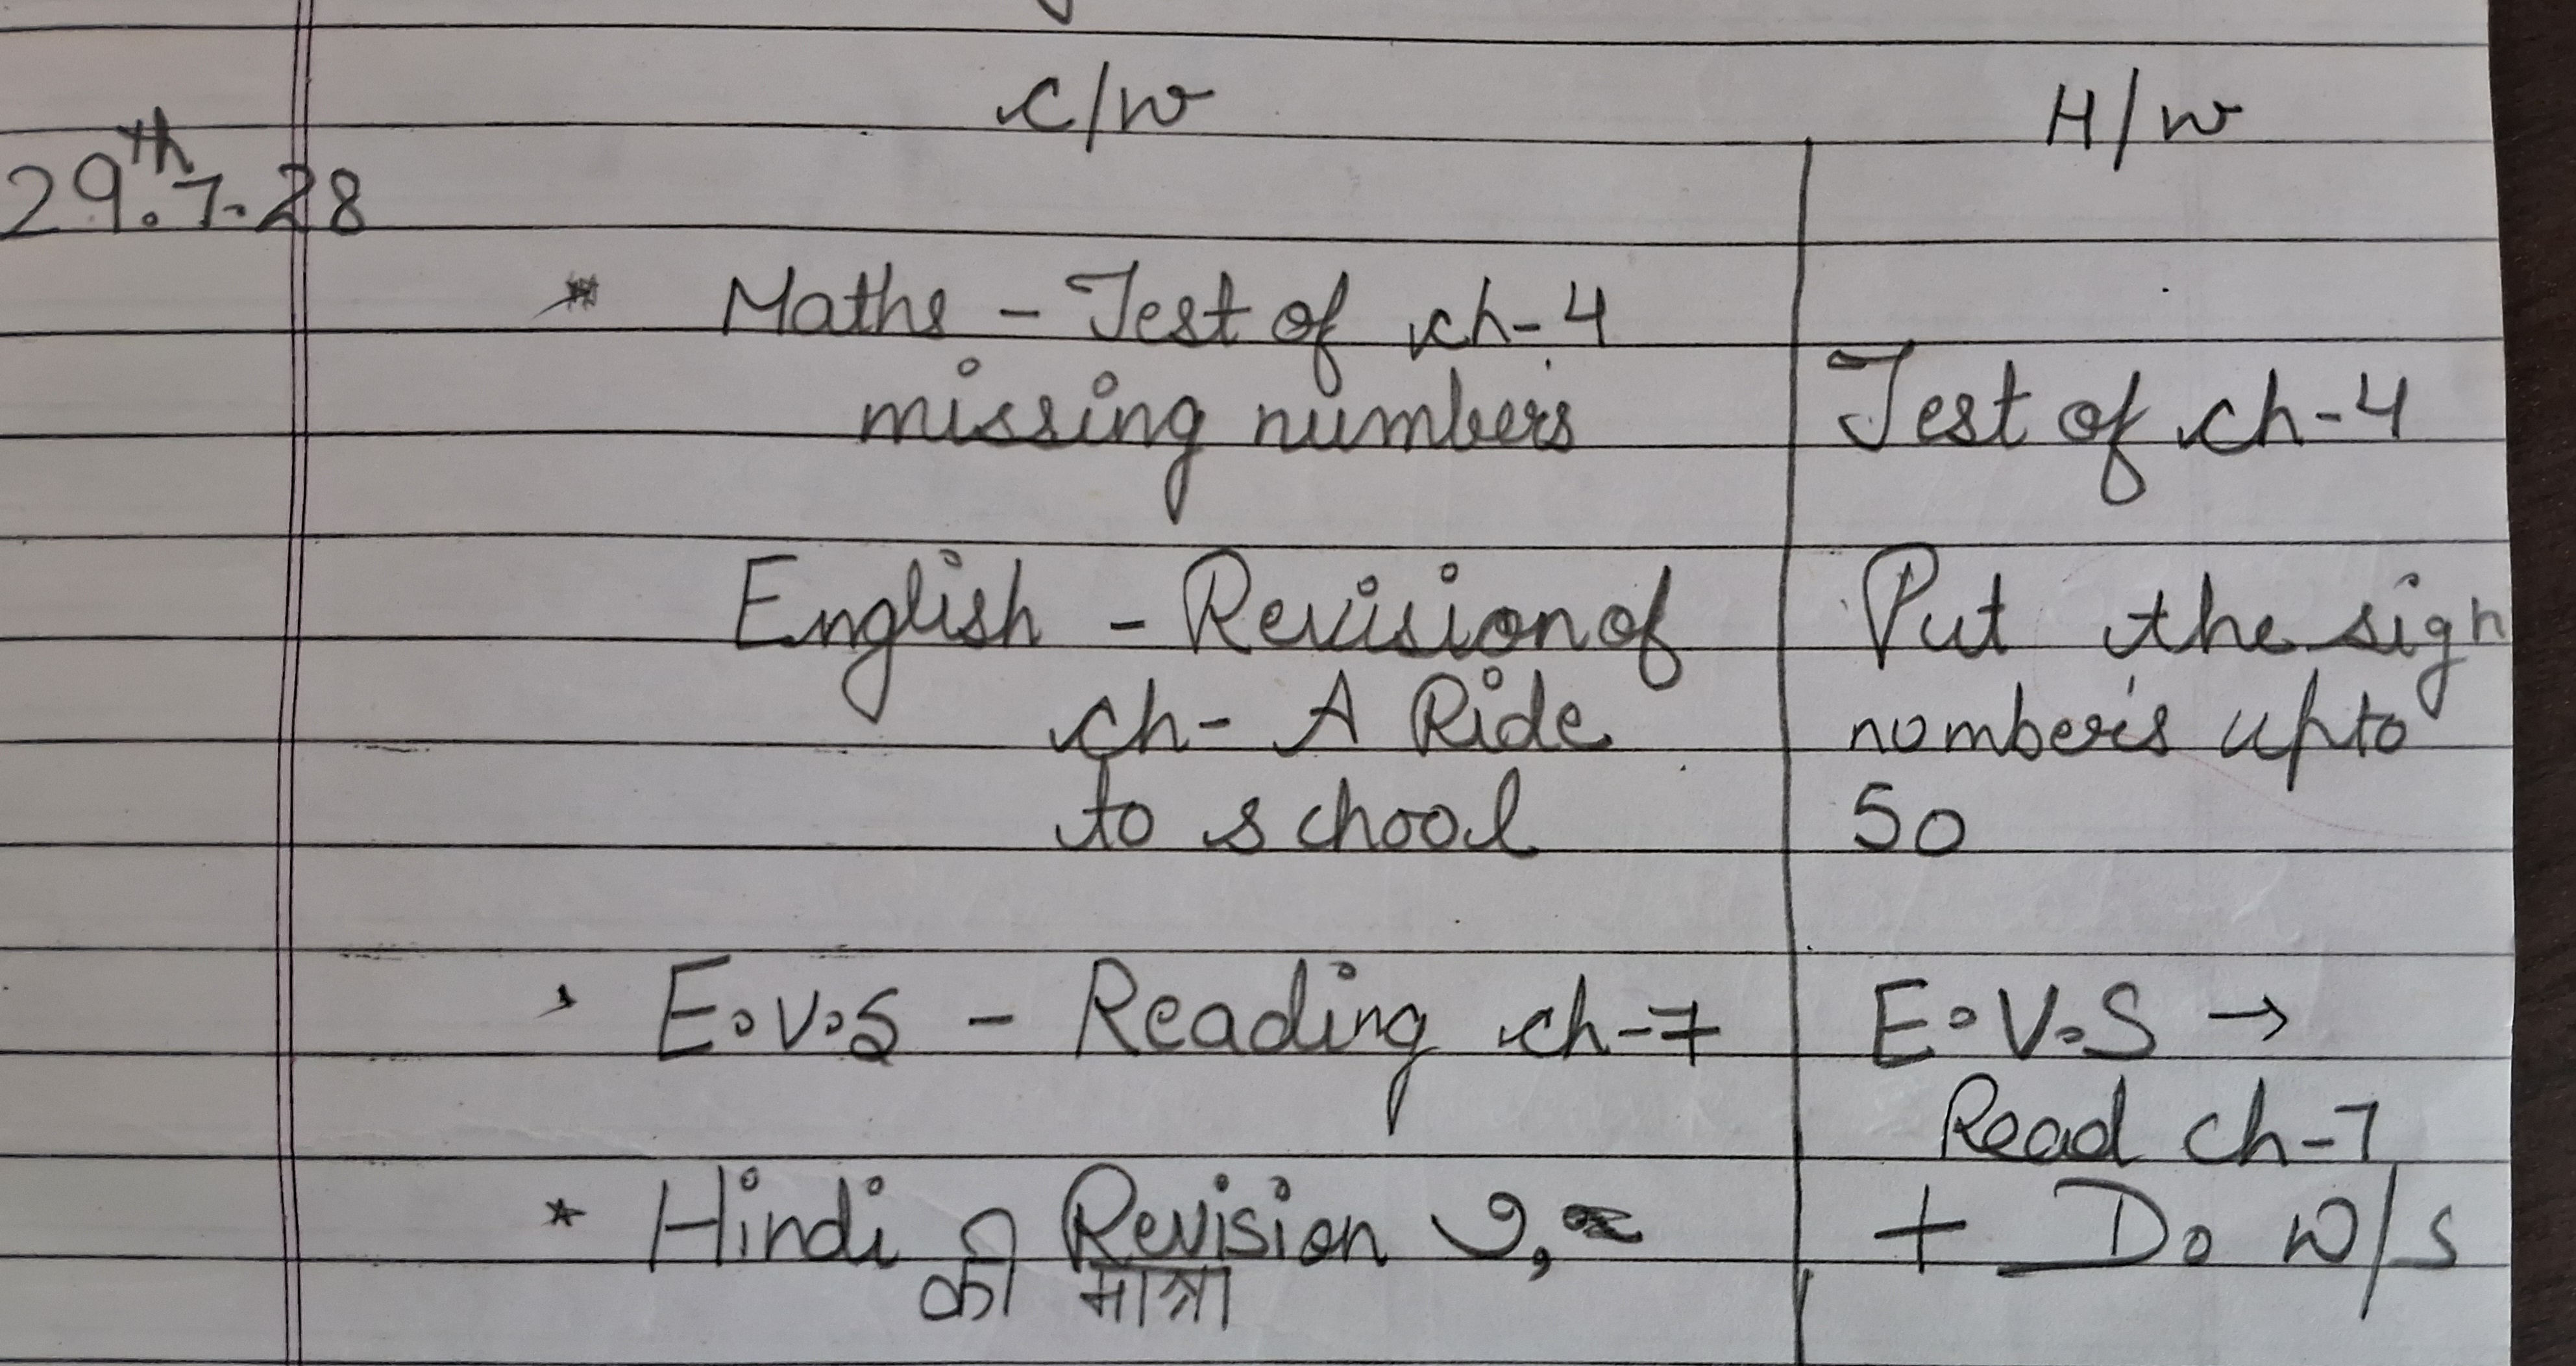 C/W H/W
29th.7.28
* Maths - Test of ch-4
missing numbers Test of ch-4
English - Revision of Put the sign
ch- A Ride numbers upto
to school 50
E.V.S - Reading ch-7 E.V.S →
Read ch-7
* Hindi Revision + Do W/S
की मात्रा